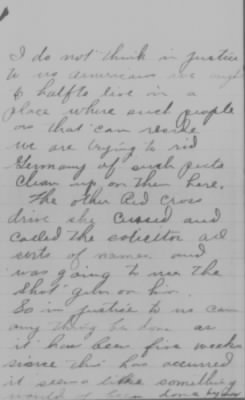 I do not think in justice
to us americans we ought
to half to live in a
place where such people
as that can reside
we are trying to rid
Germany of such pests
Clean up on them here.
The other Red Cross
drive she cussed and
called the solicitor all
sorts of names and
was going to use the
Shot gun on him.
So in justice to us can
any thing be done as
it has been five weeks
since this has occurred
it seems like something
would of been done by now